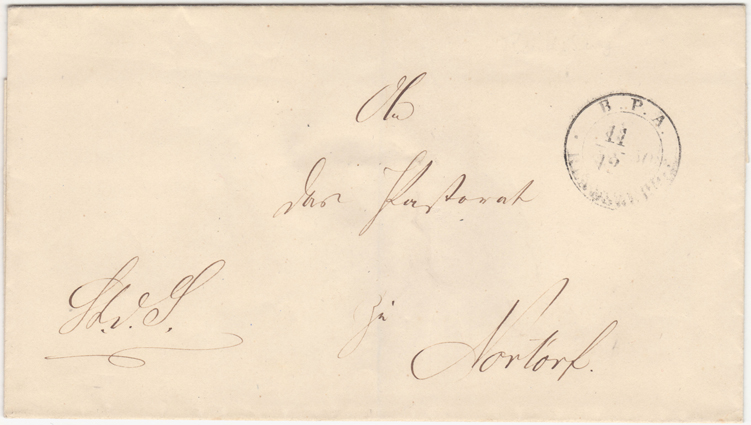 An
das Pastorat
zu
Nortorf.
St. d. S.
B. P. A.
11
12